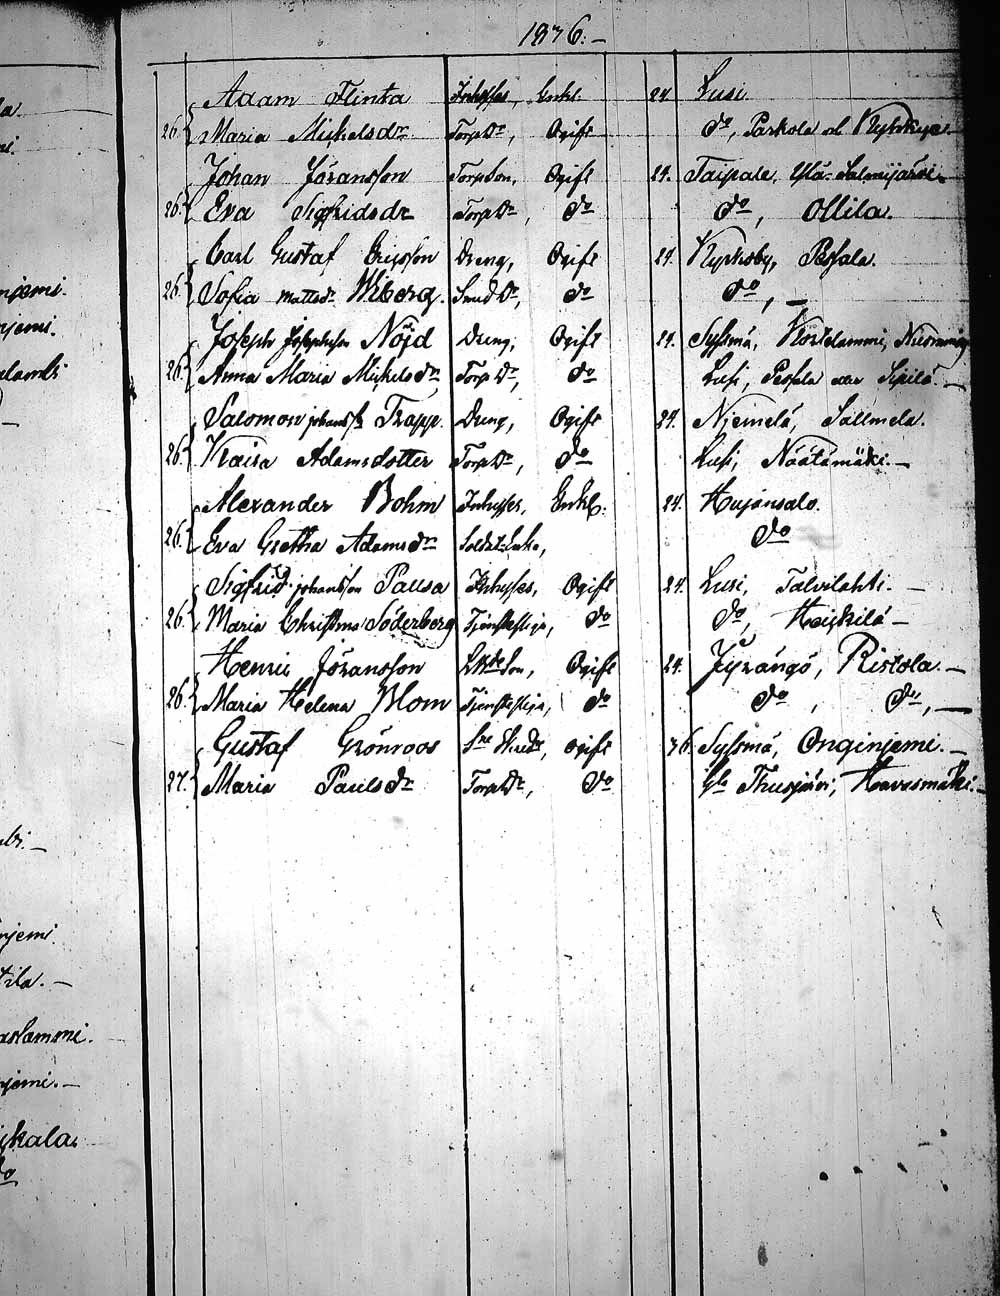 1876.-
Adam Flinta Inhyses, Enkl. 24. Lusi.
26. Maria Mickelsdr Torp.Dr, Ogift Do, Paskola
Johan Jöransson TorpSon, Ogift 24. Taipale, Ylä-Salmijärvi
26. Eva Sigfridsdr Torp Dr, Do Do, Ollila.
Carl Gustaf Ericsson Dreng, Ogift 24. Kyrkoby, Pessala.
26. Sofia Mattsdr Wiberg. Smed Dr, Do Do, —
Joseph Josephsson Nöjd Dreng, Ogift 24. Sysmä,
26. Anna Maria Mickelsdr, Torp Dr, Do Lusi, Pessala Sipilä —
Salomon Johanss. Trapp. Dreng, Ogift 24. Njemelä, Sällmelä.
26. Kaisa Adamsdotter Torp Dr, Do Lusi, Näätämäki. —
Alexander Bohm Inhyses, Enkl. 24. Hujansalo.
26. Eva Gretha Adamsdr Soldat Enka, Do
Sigfrid Johansson Pausa Inhyses, Ogift 24. Lusi, Talvilahti. —
26. Maria Christina Söderberg Tjenstepiga, Do Do, Heickilä —
Henric Jöransson Son, Ogift 24. Jyrängö, Ristola. —
26. Maria Helena Blom Tjenstepiga, Do Do, Do, —
Gustaf Grönroos Ogift 26. Sysmä, Onginjemi. —
27. Maria Paulsdr Torp Dr, Do Havusmäki. —
la.
njemi.
njemi.
lambi
njemi
njemi. —
ckala.
Do